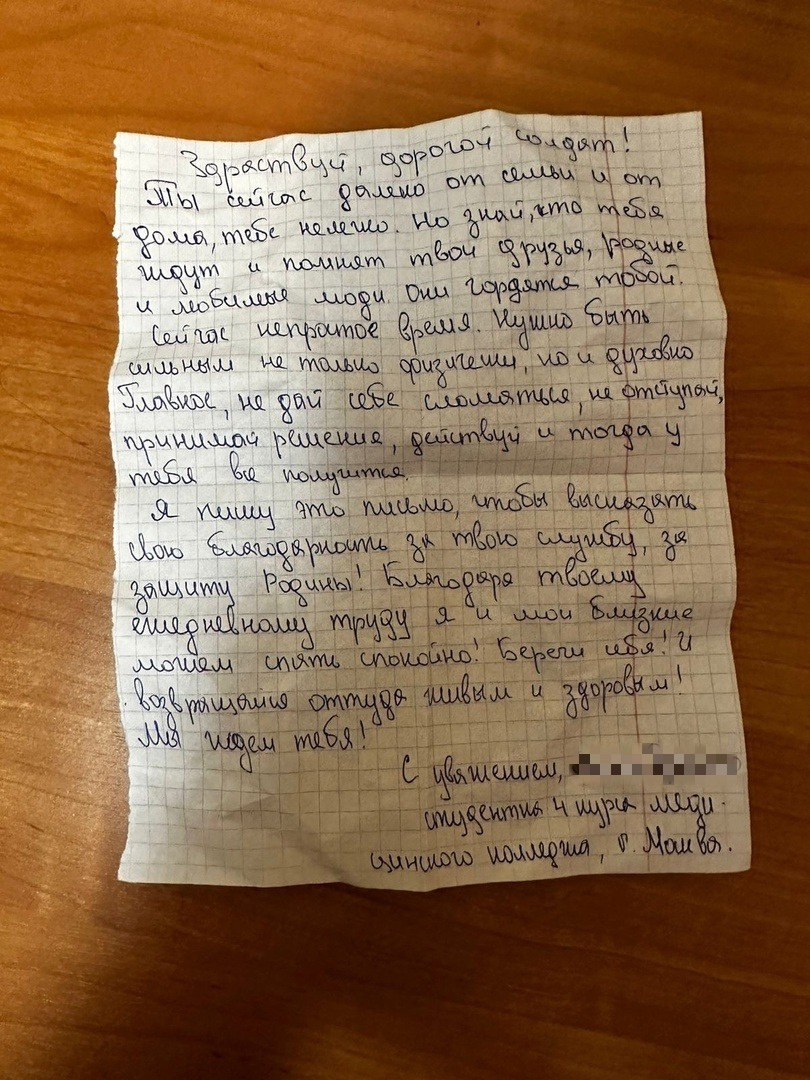 Здраствуй, дорогой солдат!
Ты сейчас далеко от семьи и от
дома, тебе нелегко. Но знай, что тебя
ждут и помнят твои друзья, родные
и любимые люди. Они гордятся тобой.
Сейчас непростое время. Нужно быть
сильным не только физически, но и духовно
Главное, не дай себе сломаться, не отступай,
принимай решение, действуй и тогда у
тебя все получится.
Я пишу это письмо, чтобы высказать
свою благодарность за твою службу, за
защиту Родины! Благодаря твоему
ежедневному труду я и мои близкие
можем спать спокойно! Береги себя! И
возвращайся оттуда живым и здоровым!
Мы ждем тебя!
С уважением,
студентка 4 курса меди-
цинского колледжа, г. Москва.